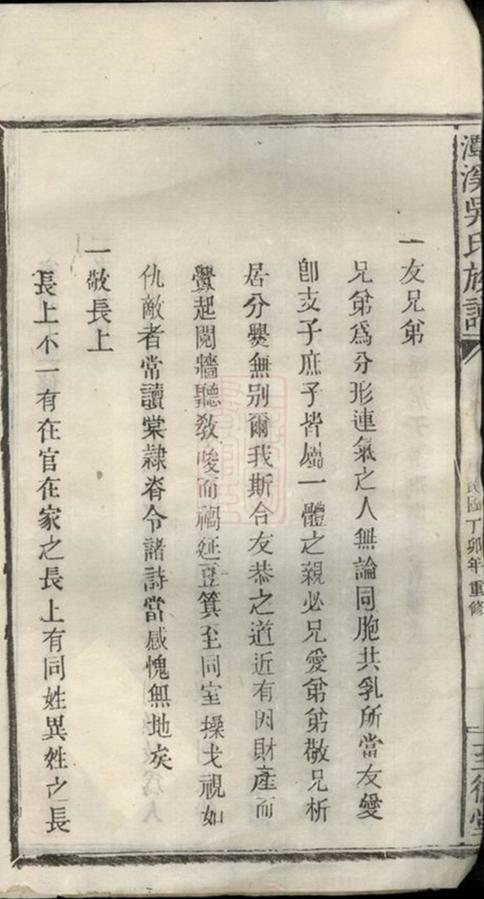 潭溪吳氏族譜
民國丁卯年重修
至德堂
一友兄弟
兄弟爲分形連氣之人無論同胞共乳所當友愛
卽支子庶子皆屬一體之親必兄愛弟弟敬兄析
居分爨無別爾我斯合友恭之道近有因財產而
釁起鬩牆聽敎唆而禍延豆箕至同室操戈視如
仇敵者常讀棠隸脊令諸詩當感愧無地矣
一敬長上
長上不一有在官在家之長上有同姓異姓之長